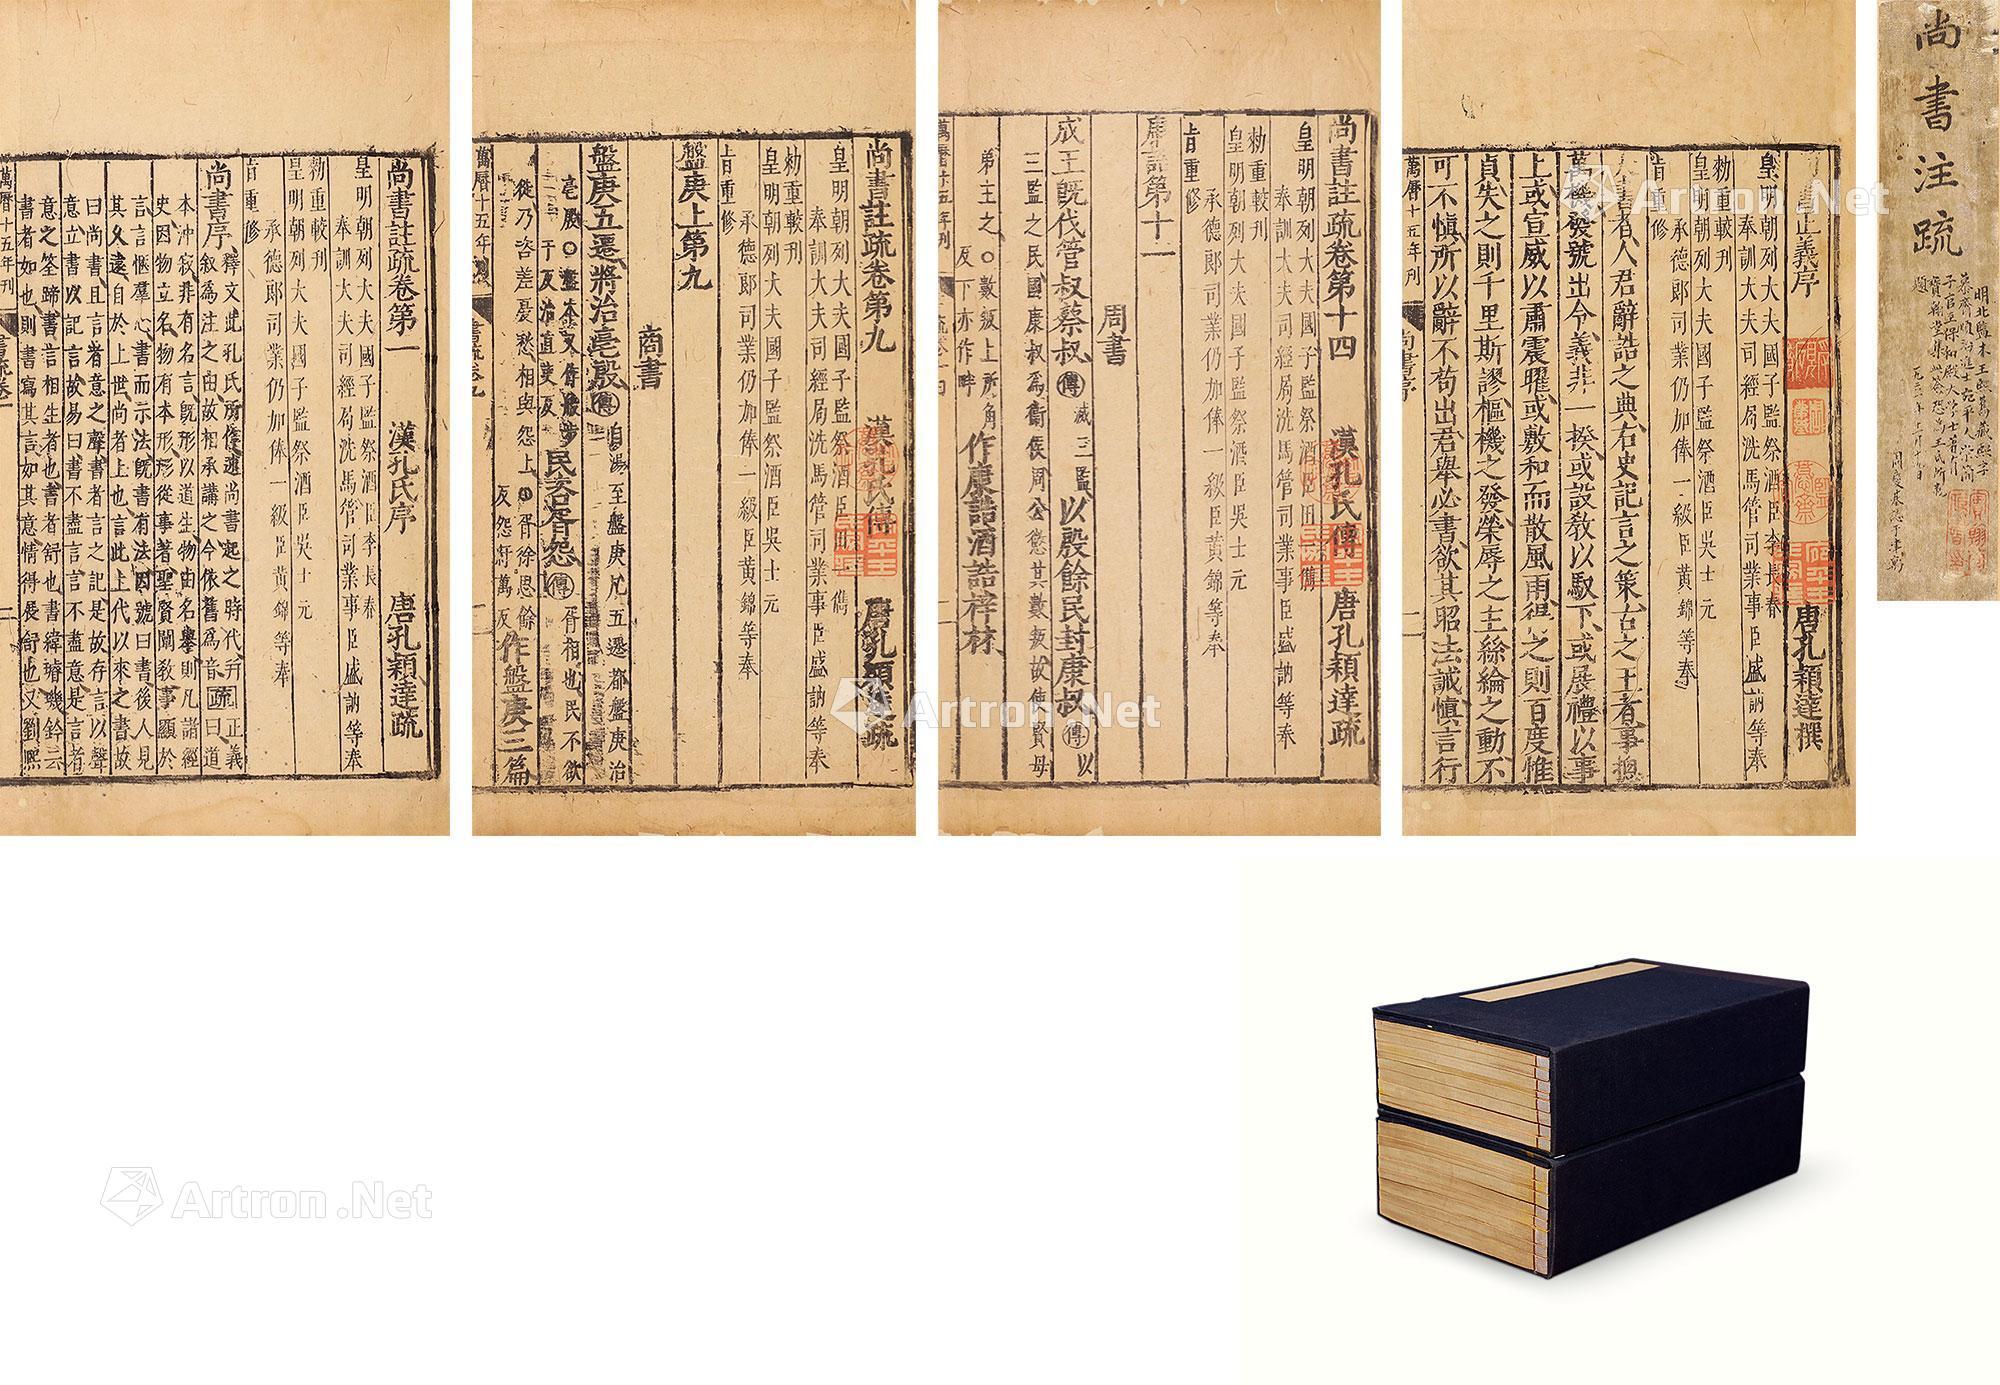 尚書注疏
尚書正義序
唐孔穎達撰
皇明朝列大夫國子監祭酒臣李長春
奉訓大夫司經局洗馬管司業事臣盛訥等奉
勑重較刊
皇明朝列大夫國子監祭酒臣吳士元
承德郎司業仍加俸一級臣黃錦等奉
旨重修
書者人君辭誥之典右史記言之策古之王者事揔
萬機發號出令義非一揆或設教以馭下或展禮以事
上或宣威以肅震曜或敷和而散風雨得之則百度惟
貞失之則千里斯謬樞機之發榮辱之主絲綸之動不
可不慎所以辭不苟出君舉必書欲其昭法誡慎言行
萬曆十五年刊
尚書序
尚書註疏卷第十四
漢孔氏傳
唐孔穎達疏
皇明朝列大夫國子監祭酒臣田一儁
奉訓大夫司經局洗馬管司業事臣盛訥等奉
勑重較刊
皇明朝列大夫國子監祭酒臣吳士元
承德郎司業仍加俸一級臣黃錦等奉
旨重修
康誥第十一
周書
成王既伐管叔蔡叔傳滅三監以殷餘民封康叔傳以
三監之民國康叔爲衞侯周公懲其數叛故使賢母
弟主之○數叛上所角反下亦作畔作康誥酒誥梓材
尚書註疏卷第九
漢孔氏傳
唐孔穎達疏
皇明朝列大夫國子監祭酒臣田一儁
奉訓大夫司經局洗馬管司業事臣盛訥等奉
勑重較刊
皇明朝列大夫國子監祭酒臣吳士元
承德郎司業仍加俸一級臣黃錦等奉
旨重修
盤庚上第九
商書
盤庚五遷將治亳殷傳自湯至盤庚凡五遷都盤庚治
亳殷○盤本又作般步干反治直吏反民咨胥怨傳胥相也民不欲
徙乃咨嗟憂愁相與怨上○胥徐思餘反怨紆萬反作盤庚三篇
萬曆十五年
書疏卷九
尚書註疏卷第一
漢孔氏序
唐孔穎達疏
皇明朝列大夫國子監祭酒臣李長春
奉訓大夫司經局洗馬管司業事臣盛訥等奉
勑重較刊
皇明朝列大夫國子監祭酒臣吳士元
承德郎司業仍加俸一級臣黃錦等奉
旨重修
尚書序釋文此孔氏所作述尚書起之時代并
叙爲注之由故相承講之今依舊爲音疏正義曰道
本沖寂非有名言既形以道生物由名舉則凡諸經
史因物立名物有本形形從事著聖賢闡教事顯於
言言愜羣心書而示法既書有法因號曰書後人見
其久遠自於上世尚者上也言此上代以來之書故
曰尚書且言者意之聲書者言之記是故存言以聲
意立書以記言故易曰書不盡言言不盡意是言者
意之筌蹄書言相生者也書者舒也書緯璿璣鈐云
書者如也則書寫其言如其意情得展舒也又劉熙
萬曆十五年刊
書疏卷一
Artron.Net
Artron.Net
Artron.Net